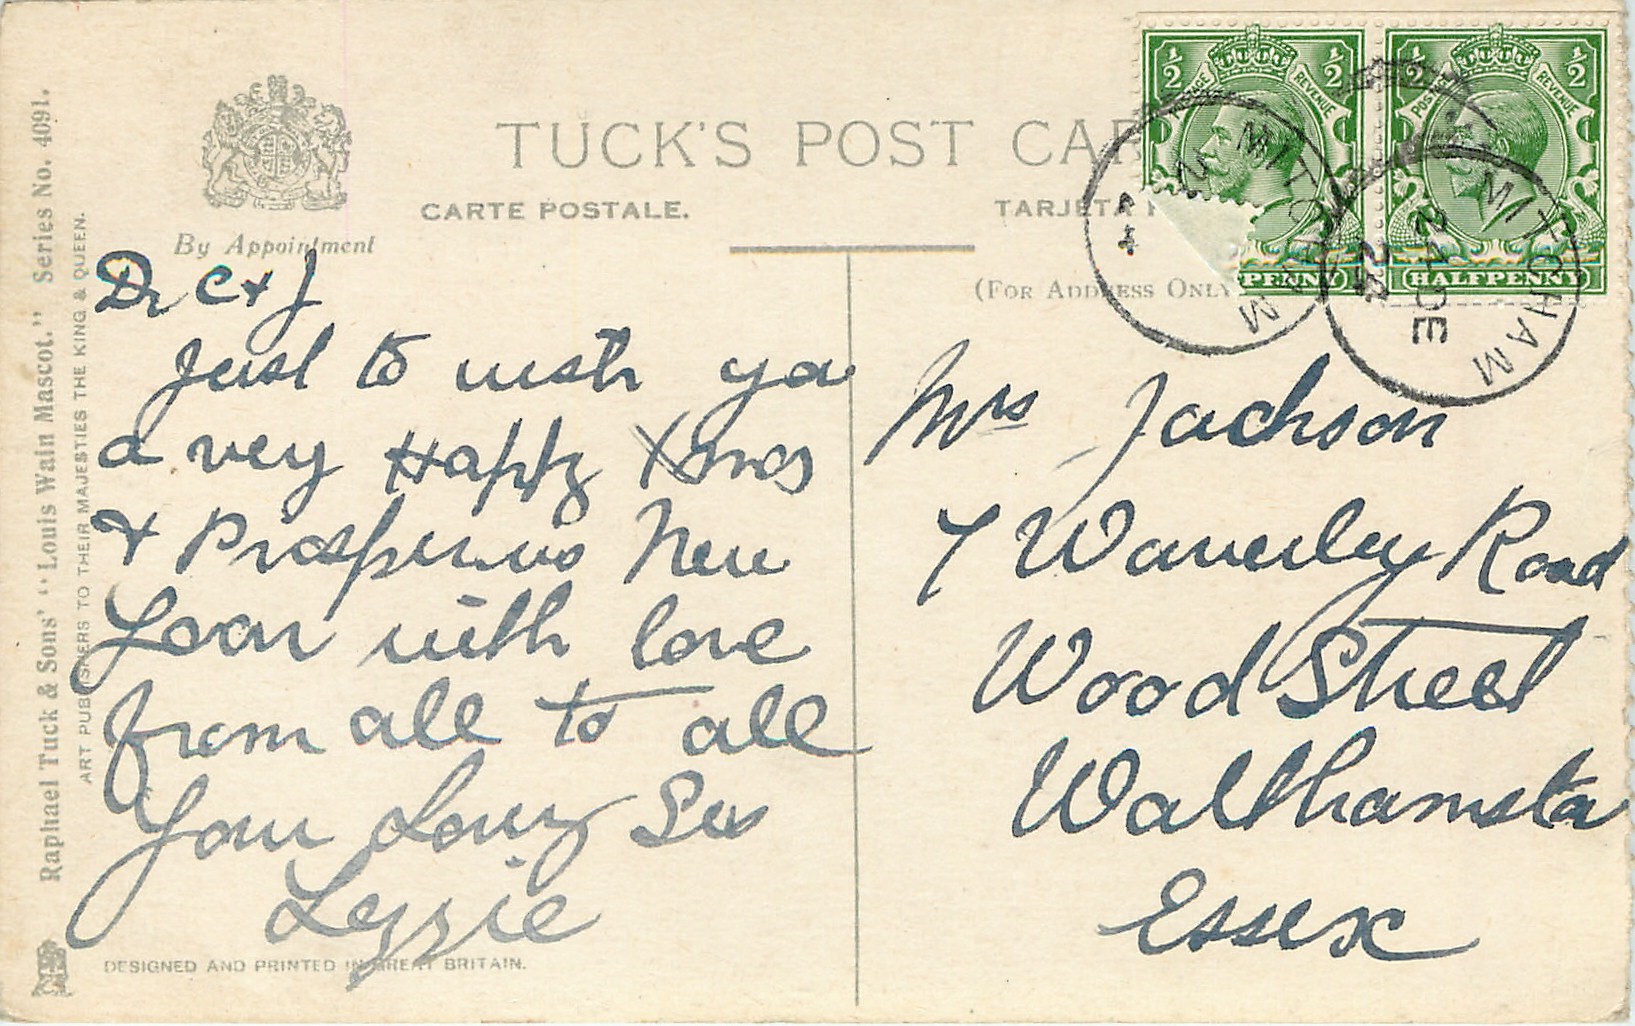 Raphael Tuck & Sons' "Louis Wain Mascot." Series No. 4091.
ART PUBLISHERS TO THEIR MAJESTIES THE KING & QUEEN.
TUCK'S POST CAR
CARTE POSTALE.
TARJETA P
By Appointment
(FOR ADDRESS ONLY
1/2 1/2
POSTAGE REVENUE
PENNY
1/2 1/2
POSTAGE REVENUE
HALFPENNY
MITCHAM
MITCHAM
24 DE
24
Dr C & J
Just to wish ya
a very Happy Xmas
& Prosperous New
Year with love
from all to all
Your Loving Sis
Lizzie
Mrs Jackson
7 Waverley Road
Wood Street
Walthamsto
Essex
DESIGNED AND PRINTED IN GREAT BRITAIN.